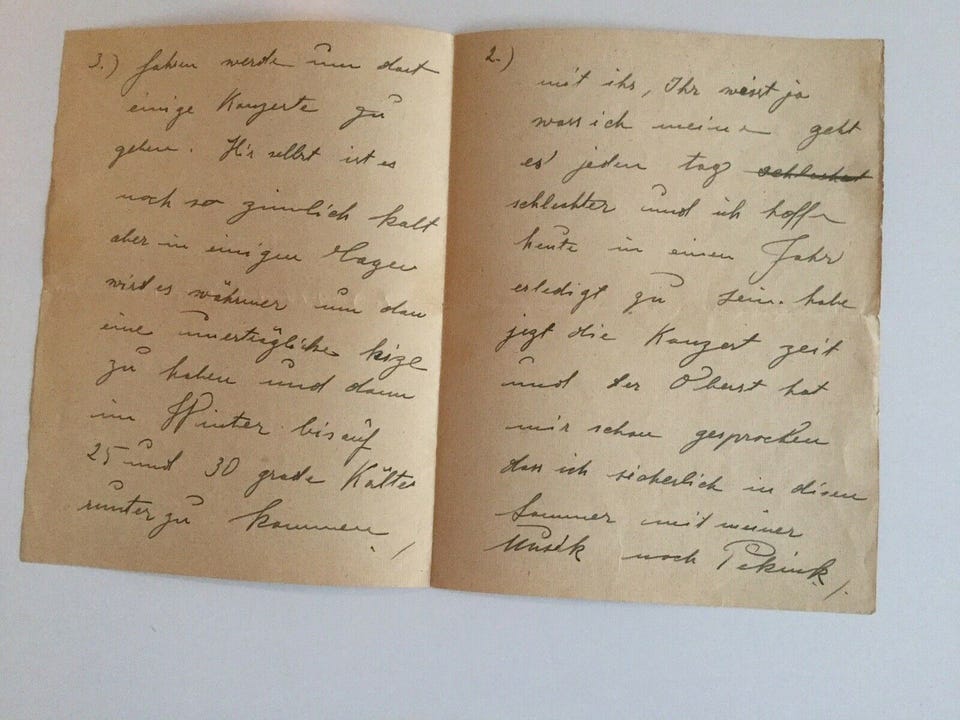 2.)
mit ihr, Ihr wisst ja
wass ich meine geht
es jeden tag schlechter
schlechter und ich hoffe
heute in einen Jahr
erledigt zu sein. habe
jezt die Konzert zeit
und der Oberst hat
mir schon gesprochen
dass ich sicherlich in disen
Sommer mit meiner
Musik nach Pekink /.
3.) fahren werde um dort
einige Konzerte zu
geben. Hir selbst ist es
noch so zimlich kalt
aber in einigen Tagen
wird es währmer um dan
eine unerträgliche hize
zu haben und dann
im Winter bis auf
25 und 30 grade Kälte
runter zu kommen. /